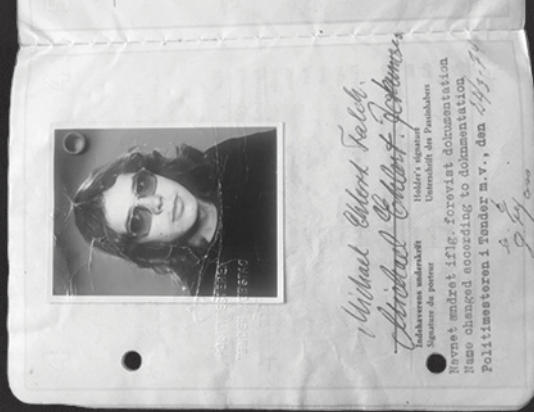 Michael Ehlert Falch.
Michael Ehlert. Johansen
Indehaverens underskrift Holder's signature
Signature du porteur Unterschrift des Passinhabers
Navnet ændret iflg. forevist dokumentation
Name changed according to doknmentation
Politimesteren i Tønder m.v., den